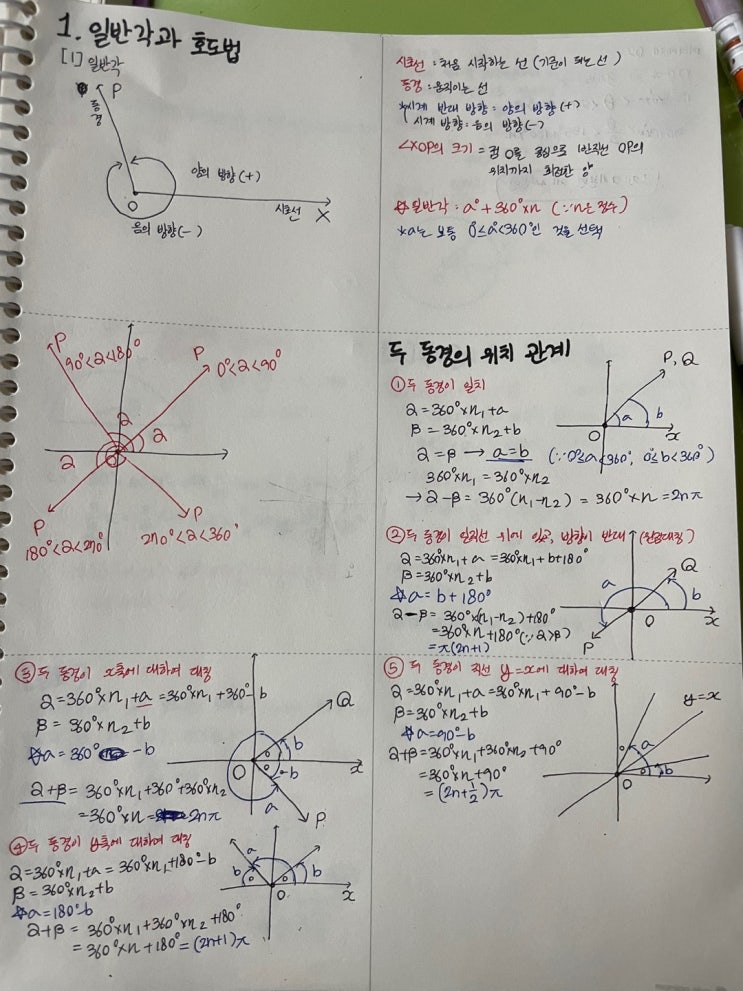 1. 일반각과 호도법
[1] 일반각
P
동경
양의 방향(+)
O
시초선
X
음의 방향(-)
시초선 : 처음 시작하는 선 (기준이 되는 선)
동경 : 움직이는 선
*시계 반대 방향 : 양의 방향 (+)
시계 방향 : 음의 방향(-)
∠XOP의 크기 = 점 O를 중심으로 반직선 OP의
위치까지 회전한 양
☆일반각 : a° + 360°×n (∵n은 정수)
*a는 보통 0≤a°<360°인 것을 선택
P
90°<α<180°
P
0°<α<90°
α
α
α
P
180°<α<270°
P
270°<α<360°
두 동경의 위치 관계
① 두 동경이 일치
α=360°×n₁+a
β=360°×n₂+b
α=β → a=b (∵0°≤a<360°, 0°≤b<360°)
360°×n₁=360°×n₂
→ α-β = 360°(n₁-n₂) = 360°×n=2nπ
P, Q
a
b
O
x
② 두 동경이 일직선 위에 있고, 방향이 반대 (원점대칭)
α=360×n₁+a=360°×n₁+b+180°
β=360°×n₂+b
☆a=b+180°
α-β= 360°×(n₁-n₂)+180°
=360°×n+180°(∵α>β)
=π(2n+1)
a
Q
b
P
O
x
③ 두 동경이 x축에 대하여 대칭
α=360°×n₁+a=360°×n₁+360°-b
β=360°×n₂+b
☆a=360°-b
α+β= 360°×n₁+360°+360°×n₂
=360°×n=2nπ
Q
b
-b
O
x
a
P
④ 두 동경이 y축에 대하여 대칭
α=360°×n₁+a=360°×n₁+180°-b
β=360°×n₂+b
☆a=180°-b
α+β= 360°×n₁+360°×n₂+180°
=360°×n+180°=(2n+1)π
a
b
b
O
x
⑤ 두 동경이 직선 y=x에 대하여 대칭
α=360°×n₁+a=360°×n₁+90°-b
β=360°×n₂+b
☆a=90°-b
α+β=360°×n₁+360°×n₂+90°
=360°×n+90°
=(2n+½)π
y=x
a
b
O
x